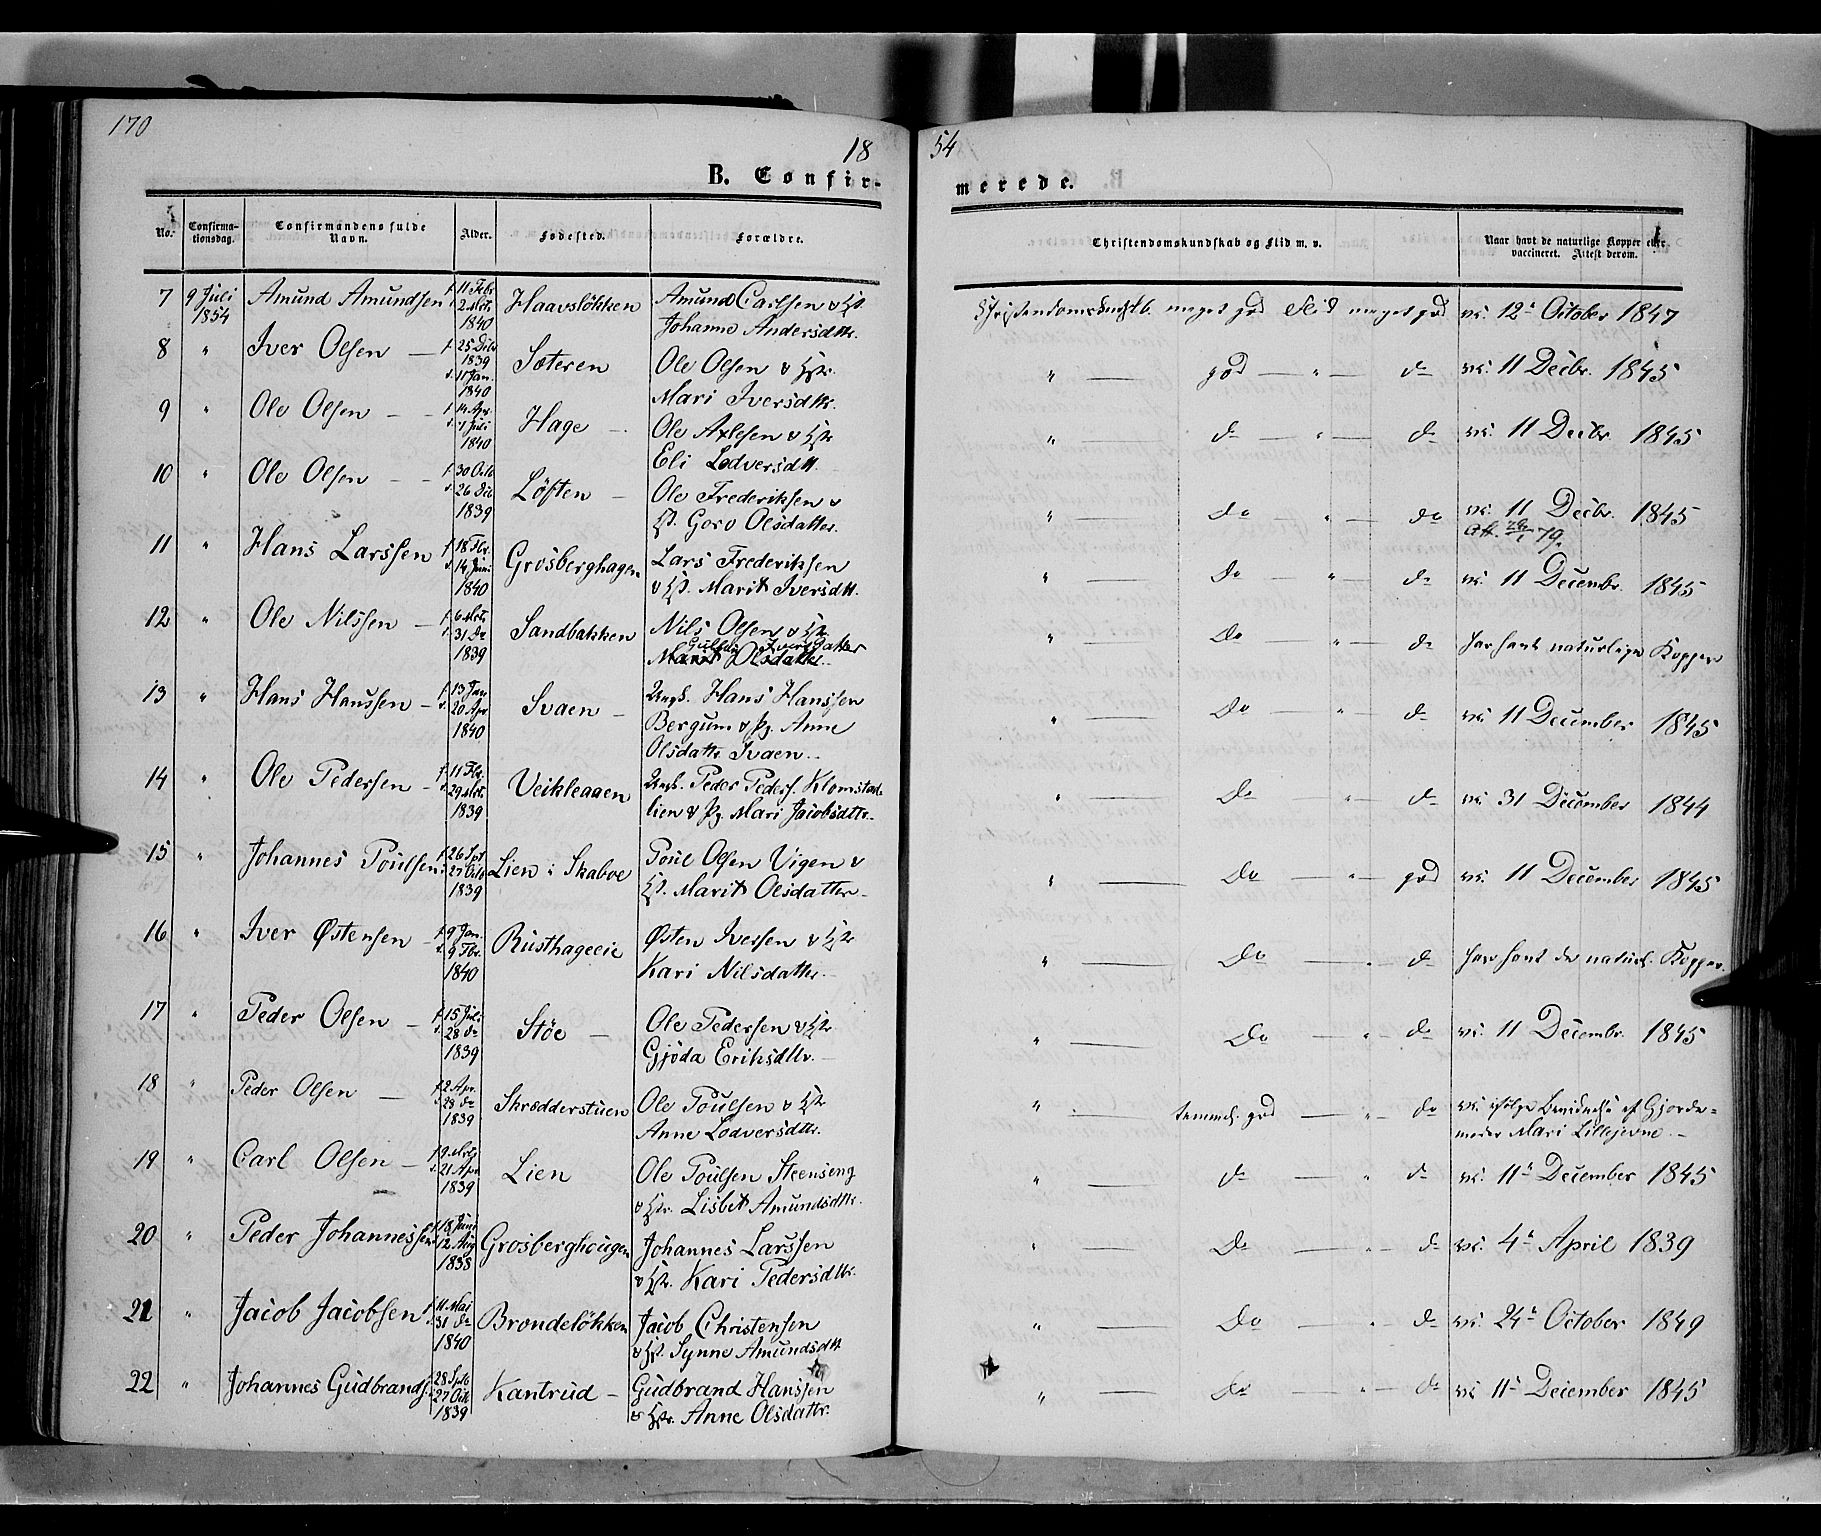 170
18 54
B. Confirmerede.
No. Confirmationsdag. Confirmandens fulde Navn. Alder. Fødested. Forældre. Christendomskundskab og Flid m. v. Naar havt de naturlige Kopper eller vaccineret. Attest derom.
7 9 Juli 1854 Amund Amundsen f. 11 Febr. 2 Mrts. 1840 Haavsløkken Amund Carlsen & Hst. Johanne Andersdttr. Christendomskundskb. meget god Flid meget god vc. 12te October 1847
8 " Iver Olsen — f. 25 Decbr 1839 d. 11 Jan. 1840 Sæteren Ole Olsen & Hstr. Mari Iversdttr. " — god — " — do vc. 11 Decbr. 1845
9 " Ole Olsen — f. 14 Apr. d. 7 Juni 1840 Hage — Ole Axlesen & Hstr Eli Lodversdtt. " — do — " — do vc. 11 Decbr. 1845
10 " Ole Olsen — f. 30 Octb d. 26 Dcb 1839 Løften — Ole Frederiksen & Hst. Goro Olsdatter. " — do — " — do vc. 11 Decbr. 1845
Att. 79.
11 " Hans Larssen f. 18 Fbr. d. 14 Juni 1840 Grosberghagen Lars Frederiksen & Hst. Marit Iversdtt. " — do — " — do vc. 11 Decembr. 1845
12 " Ole Nilssen — f. 6 Mrts. d. 31 do 1839 Sandbakken Nils Olsen & Hstr Iversdatter Marit Olsdatter. " — do " — do har havt naturlige Kopper
13 " Hans Hanssen — f. 13 Jan d. 20 Apr 1840 Svaen — Ungk. Hans Hanssen Bergum & Pg. Anne Olsdattr. Svaen. " — do — " — do vc. 11 December 1845
14 " Ole Pedersen — f. 11 Fbr. d. 29 Mrt. 1839 Veikleaaen Ungk. Peder Peders. Klomstadlien & Pg. Mari Jacobsdttr. " — do — " — do vc. 31 December 1844
15 " Johannes Poulsen f. 26 Spt 27 Octb 1839 Lien i Skaboe Poul Olsen Vigen & Hst. Marit Olsdatter. " — do — " — god vc. 11 December 1845
16 " Iver Østensen — f. 9 Jan. d. 9 Fbr. 1840 Rusthageeie Østen Iversen & Hstr Kari Nilsdatter. " — do — " — do har havt de naturl. Kopper.
17 " Peder Olsen — f. 15 Juli d. 28 do 1839 Støe — Ole Pedersen & Hstr Gjøda Eriksdttr. — " — do — " — do vc. 11 Decembr. 1845
18 " Peder Olsen — f. 2 Apr. d. 28 do 1839 Skrædderstuen Ole Poulsen & Hstr Anne Lodversdttr. " — temmel. god — " — do vc. ifølge Beviidnelse af Gjordemoder Mari Lillejevne. —
19 " Carl Olsen — f. 9 Mrts d. 21 Apr 1839 Lien Ole Poulsen Steenseng & Hstr. Lisbet Amundsdttr. " — do — " — do vc. 11te December 1845
20 " Peder Johannessen f. 18 Juni 12 Aug 1838 Grosberghougen Johannes Larssen & Hstr. Kari Pedersdttr. " — do — " — do vc. 4de April 1839
21 " Jacob Jacobsen f. 11 Mai d. 31 do 1840 Brondeløkken Jacob Christensen & Hst. Synne Amundsdtt " — do — " — do vc. 24de October 1849
22 " Johannes Gudbrands. 28 Sptb 27 Octb 1839 Kantrud — Gudbrand Hanssen & Hstr. Anne Olsdattr. " — do — " — do vc 11te December 1845